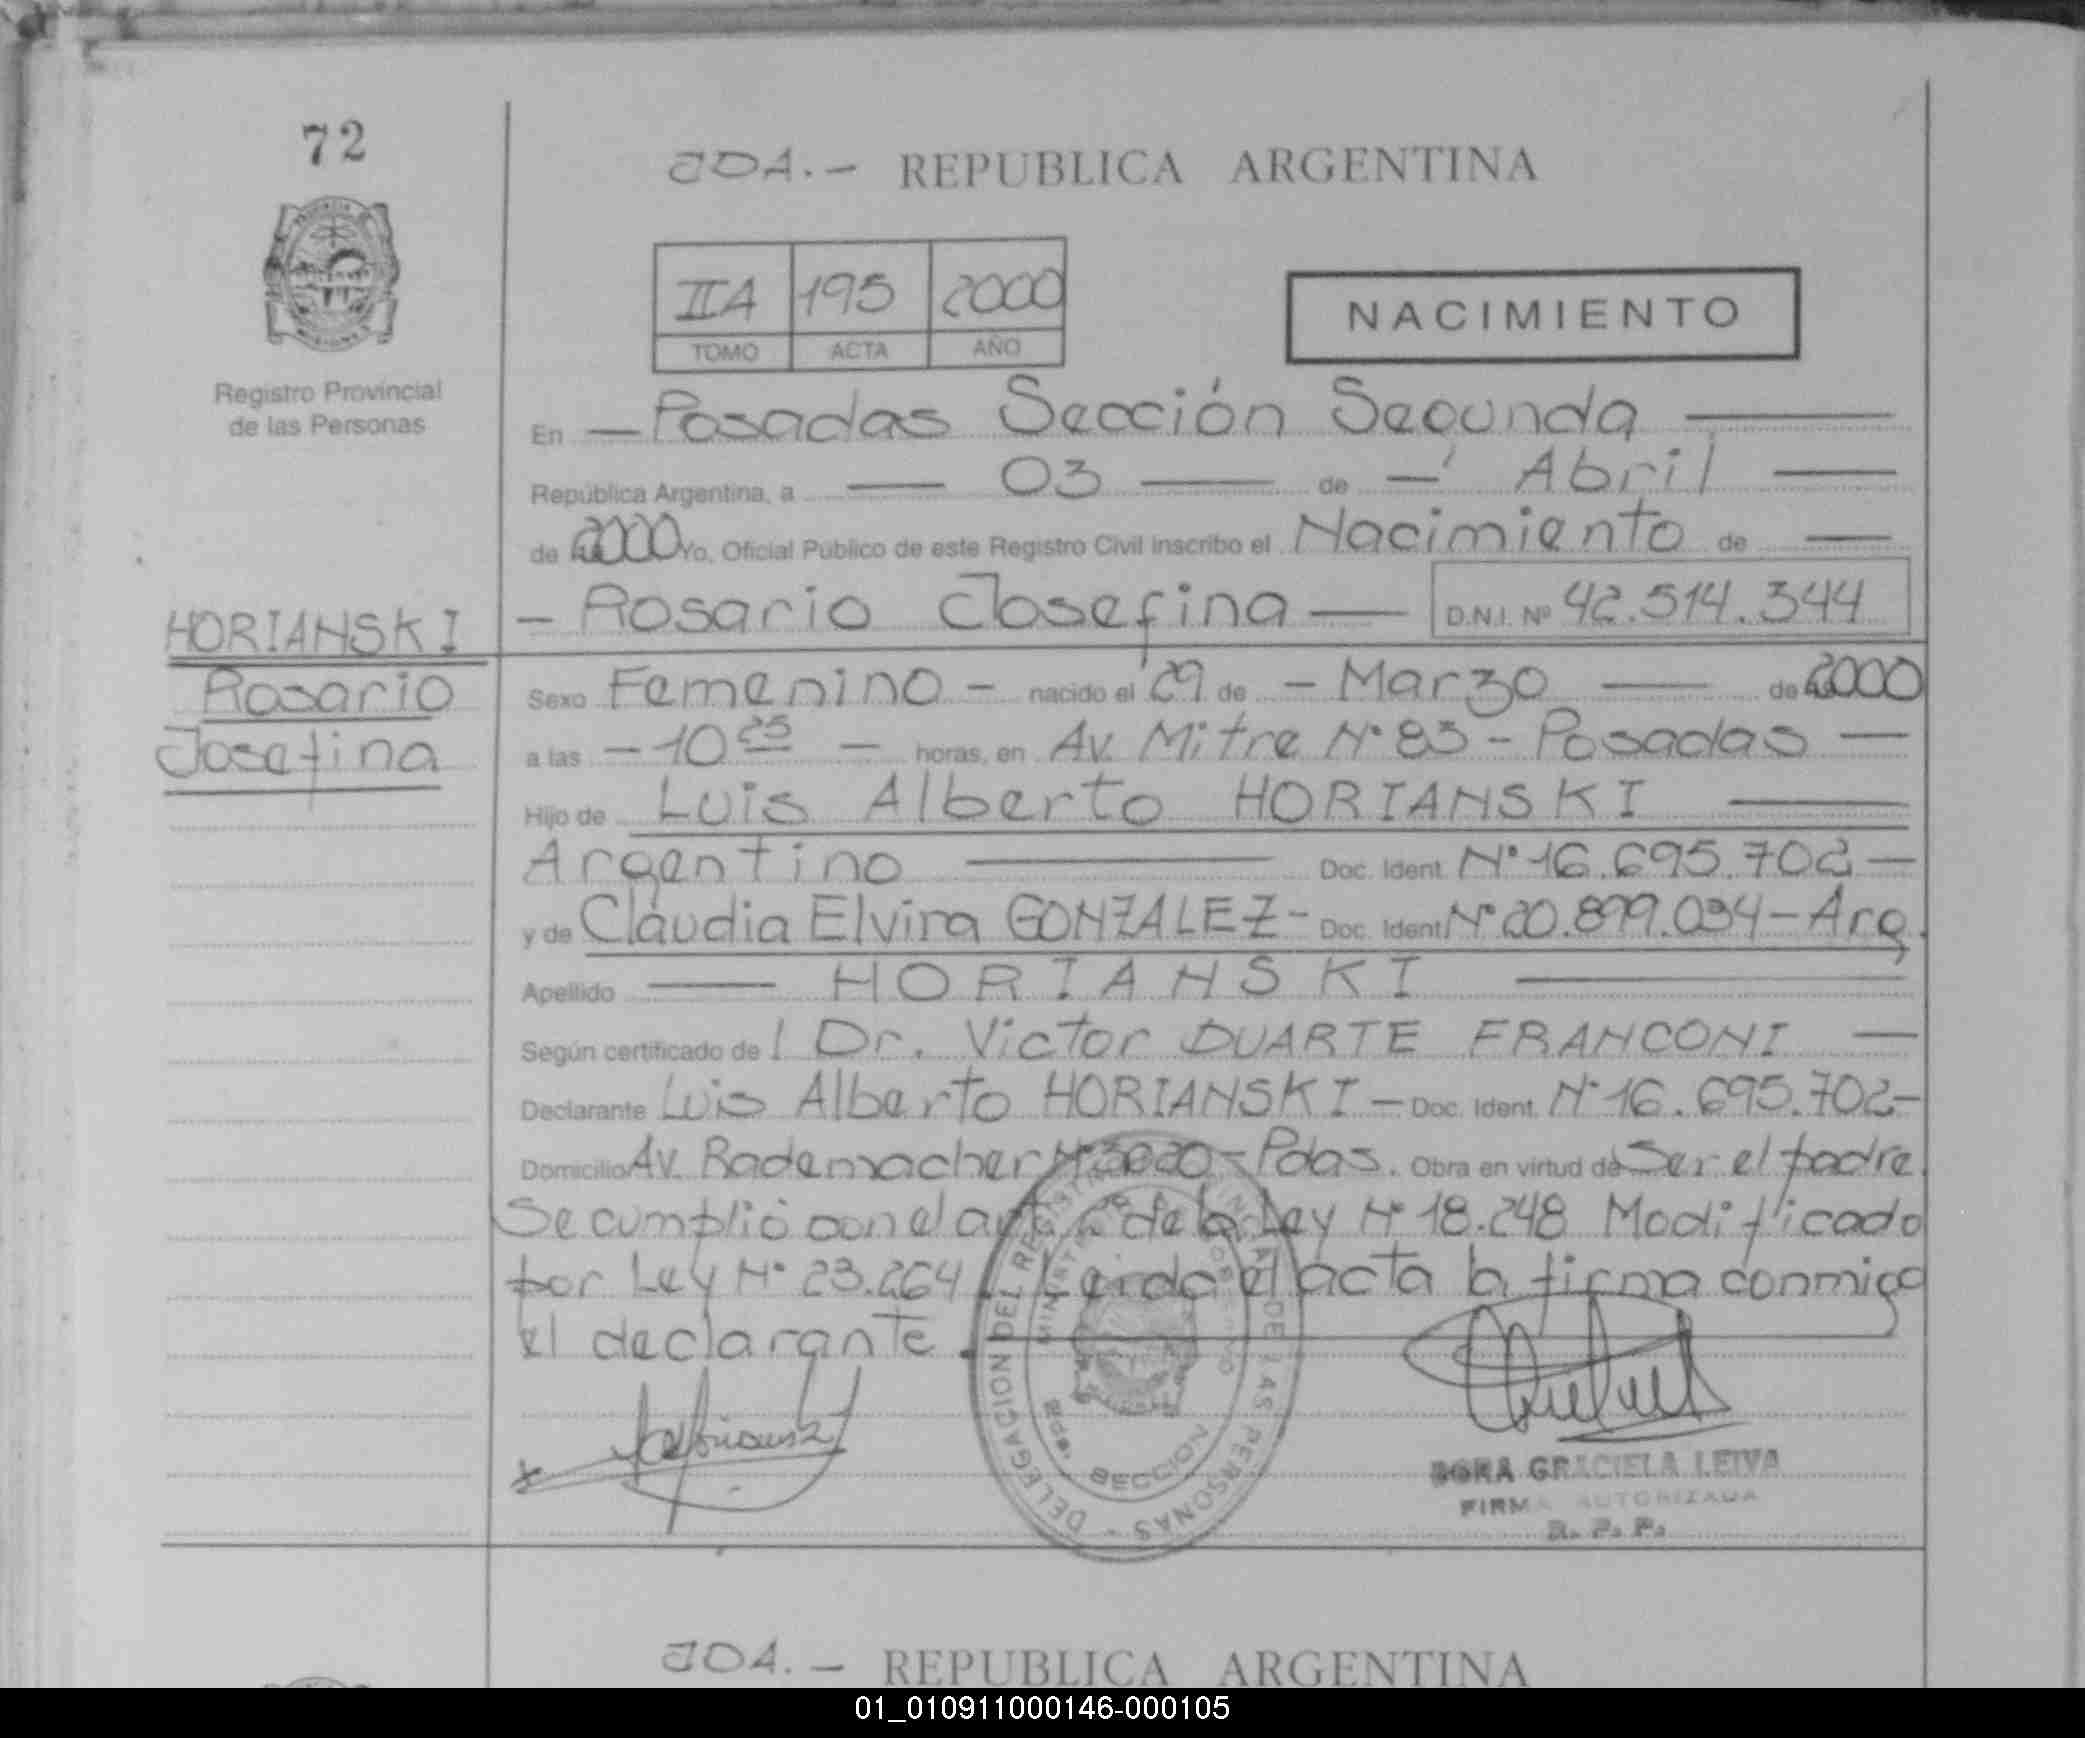 72
JDA.- REPUBLICA ARGENTINA
IIA 195 2000
TOMO ACTA AÑO
NACIMIENTO
Registro Provincial
de las Personas
En — Posadas Sección Segunda —
República Argentina, a — 03 — de — Abril —
de 2000 Yo, Oficial Público de este Registro Civil inscribo el Nacimiento de —
- Rosario Josefina — D.N.I. Nº 42.514.344
HORIANSKI
Rosario
Josefina
Sexo Femenino - nacido el 29 de - Marzo — de 2000
a las - 10 25 - horas, en Av. Mitre Nº 83 - Posadas —
Hijo de Luis Alberto HORIANSKI —
Argentino — Doc. Ident. Nº 16.695.702 —
y de Claudia Elvira GONZALEZ - Doc. Ident. Nº 20.899.034 - Arg.
Apellido — HORIANSKI —
Según certificado del Dr. Victor DUARTE FRANCONI —
Declarante Luis Alberto HORIANSKI — Doc. Ident. Nº 16.695.702 -
Domicilio Av. Rademacher Nº 3020 - Pdas. Obra en virtud de Ser el padre.
Se cumplió con el art de la Ley Nº 18.248 Modificado
por Ley Nº 23.264. Leida el acta la firma conmigo
el declarante.
DELEGACION DEL REGISTRO PROVINCIAL DE LAS PERSONAS
SECCION
DORA GRACIELA LEIVA
FIRMA AUTORIZADA
R. P. P.
JDA. - REPUBLICA ARGENTINA
01_010911000146-000105